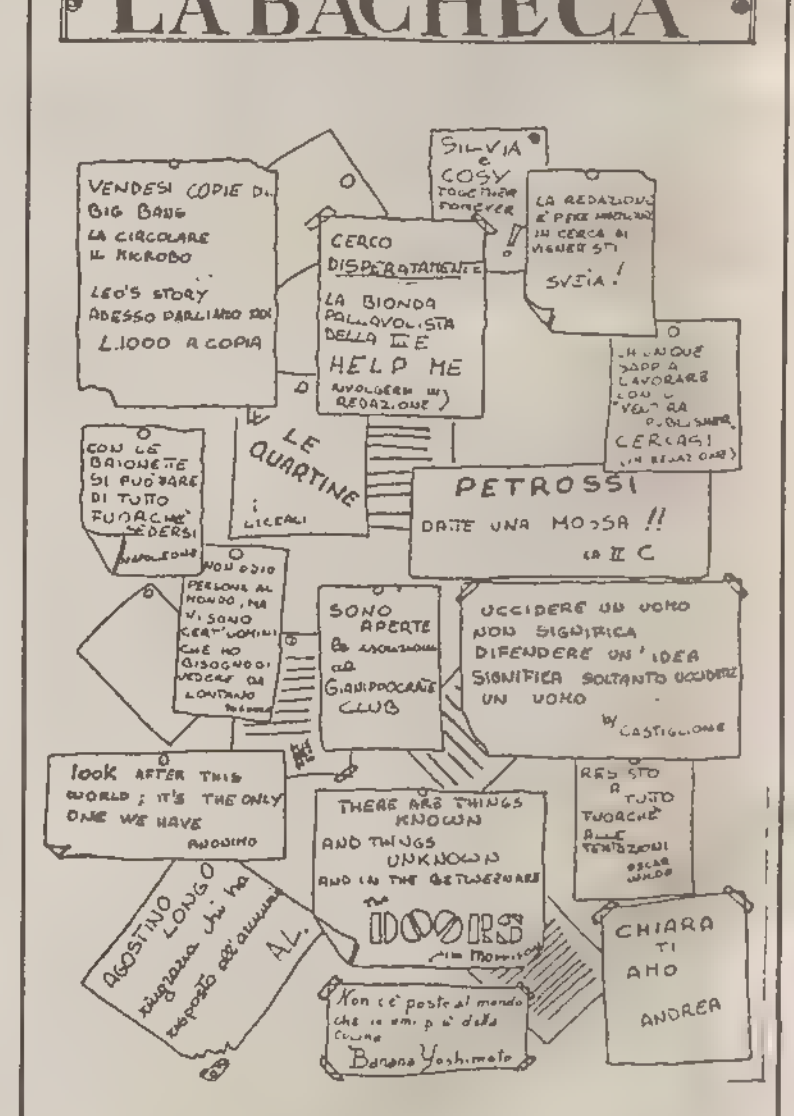 LA BACHECA
VENDESI COPIE DI
BIG BANG
LA CIRCOLARE
IL MICROBO
LEO'S STORY
ADESSO PARLIAMO NOI
L.1000 A COPIA
CERCO
DISPERATAMENTE
LA BIONDA
PALLAVOLISTA
DELLA III E
HELP ME
RIVOLGERSI IN
REDAZIONE )
SILVIA
e
COSY
TOGETHER
FOREVER
!
LA REDAZIONE
E'
IN CERCA DI
VIGNETTISTI
SVEIA!
CHIUNQUE
SAPPIA
LAVORARE
CON IL
VENTURA
PUBLISHER
CERCASI
(IN REDAZIONE)
LE
QUARTINE
i
LICEALI
CON LE
BAIONETTE
SI PUO' FARE
DI TUTTO
FUORCHE'
SEDERSI
NAPOLEONE
PETROSSI
DATTE UNA MOSSA !!
LA II C
NON ODIO
PERSONA AL
MONDO, MA
VI SONO
CERT'UOMINI
CHE HO
BISOGNO DI
VEDERE DA
LONTANO
SONO
APERTE
le iscrizioni
al
GIANIPPOCRATE
CLUB
UCCIDERE UN UOMO
NON SIGNIFICA
DIFENDERE UN'IDEA
SIGNIFICA SOLTANTO UCCIDERE
UN UOMO
by CASTIGLIONE
look AFTER THIS
WORLD; IT'S THE ONLY
ONE WE HAVE
ANONIMO
THERE ARE THINGS
KNOWN
AND THINGS
UNKNOWN
AND IN THE BETWEEN ARE
THE
DOORS
Jim Morrison
RESISTO
A
TUTTO
FUORCHE'
ALLE
TENTAZIONI
OSCAR
WILDE
AGOSTINO
LONGO
ringrazia chi ha
risposto all'annuncio
A.L.
Non c'è posto al mondo
che io ami più della
cucina
Banana Yoshimoto
CHIARA
TI
AMO
ANDREA